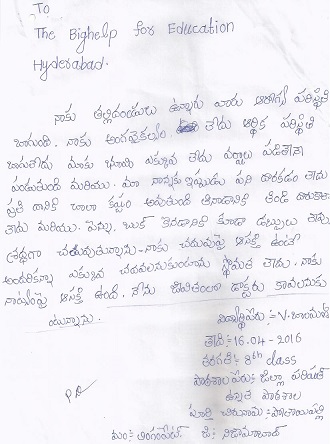 To
The Bighelp for Education
Hyderabad.
నాకు తల్లిదండ్రులు ఉన్నారు వారు ఆరోగ్య పరిస్థితి
బాగుంది. నాకు అంగవైకల్యం లేదు ఆర్థిక పరిస్థితి
బాగులేదు మాకు భూమి ఎక్కువ లేదు వర్షాలు పడితేనే
పండుతుంది మరియు. మా నాన్నకు ఇప్పుడు పని దొరకడం లేదు
ప్రతి దానికి చాలా కష్టం అవుతుంది తినడానికి తిండి
లేదు మరియు, పెన్ను, బుక్ కొనడానికి కూడా డబ్బులు లేవు
శ్రద్ధగా చదువుతున్నాను. నాకు చదువుపై ఆసక్తి ఉంటే
అందరికన్నా ఎక్కువ చదవలనుకుంటాను స్థోమత లేదు. నాకు
ఆసక్తి ఉంది. నేను జీవితంలో డాక్టరు కావలనుకు
యున్నాను.
విద్యార్థిపేరు :-
తేది:- 16-04-2016
తరగతి:- 8th class
పాఠశాల పేరు:- జిల్లా పరిషత్
ఉన్నత పాఠశాల
పూరి చిరునామ :-
మం:- లింగంపేట్. జి:- నిజామాబాద్